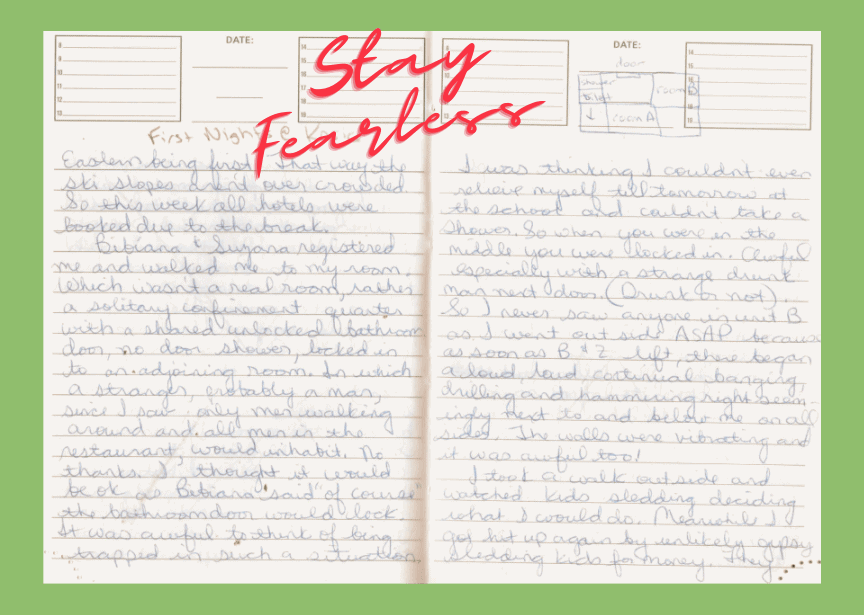 Stay
Fearless
DATE:
DATE:
door
room B
toilet
room A
First Night @
Eastern being first. That way the
ski slopes aren't over crowded
So this week all hotels were
booked due to the break.
Bibiana & Suzana registered
me and walked me to my room.
Which wasn't a real room, rather
a solitary confinement quarter
with a shared unlocked bathroom
door, no door shower, locked in
to an adjoining room. In which
a stranger, probably a man,
since I saw only men walking
around and all men in the
restaurant, would inhabit. No
thanks. I thought it would
be ok as Bibiana said "of course"
the bathroom door would lock.
It was awful to think of being
trapped in such a situation
I was thinking I couldn't even
relieve myself till tomorrow at
the school and couldn't take a
shower. So when you were in the
middle you were locked in. Awful
especially with a strange drunk
man next door. (Drunk or not).
So I never saw anyone in unit B
as I went out side ASAP because
as soon as B & Z left, there began
a loud, loud continual banging,
drilling and hammering right seem-
ingly next to and below me on all
sides. The walls were vibrating and
it was awful too!
I took a walk outside and
watched kids sledding deciding
what I would do. Meanwhile I
got hit up again by unlikely gypsy
sledding kids for money. They